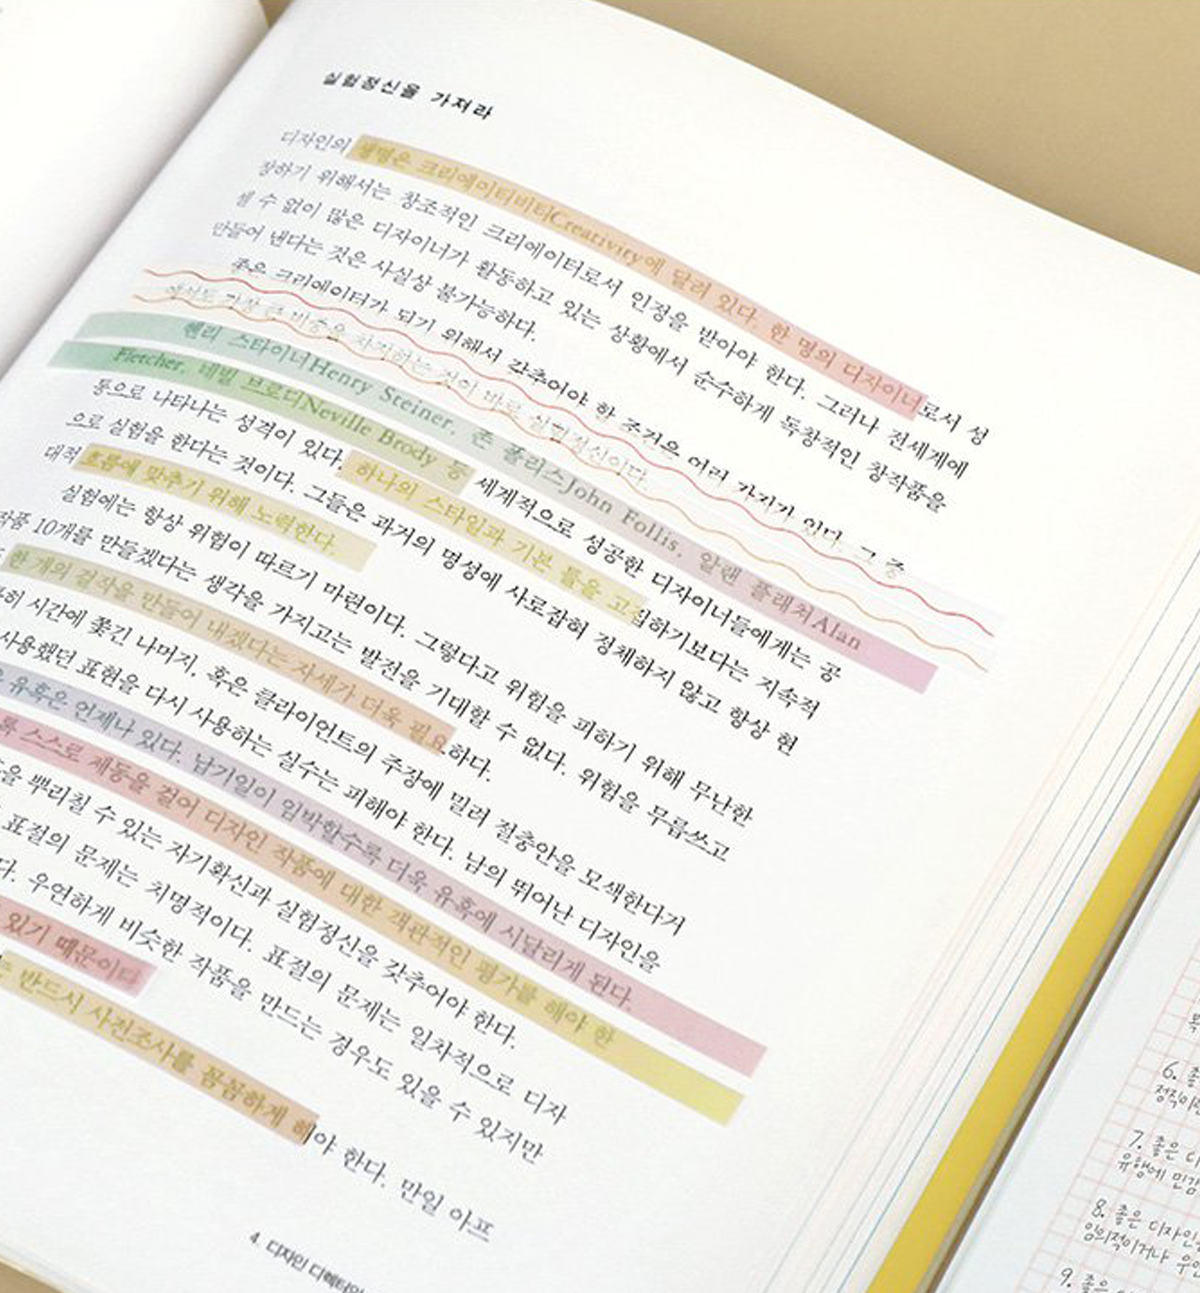 실험정신을 가져라
디자인의 생명은 크리에이터비티Creativity에 달려 있다. 한 명의 디자이너로서 성
장하기 위해서는 창조적인 크리에이터로서 인정을 받아야 한다. 그러나 전세계에
셀 수 없이 많은 디자이너가 활동하고 있는 상황에서 순수하게 독창적인 창작품을
만들어 낸다는 것은 사실상 불가능하다.
좋은 크리에이터가 되기 위해서 갖추어야 할 조건은 여러 가지가 있다. 그 중
에서도 가장 큰 비중을 차지하는 것이 바로 실험정신이다.
헨리 스타이너Henry Steiner, 존 폴리스John Follis, 알랜 플래처Alan
Fletcher, 네빌 브로디Neville Brody 등 세계적으로 성공한 디자이너들에게는 공
통으로 나타나는 성격이 있다. 하나의 스타일과 기본 틀을 고집하기보다는 지속적
으로 실험을 한다는 것이다. 그들은 과거의 명성에 사로잡혀 정체하지 않고 항상 현
대적 흐름에 맞추기 위해 노력한다.
실험에는 항상 위험이 따르기 마련이다. 그렇다고 위험을 피하기 위해 무난한
작품 10개를 만들겠다는 생각을 가지고는 발전을 기대할 수 없다. 위험을 무릅쓰고
한 개의 걸작을 만들어 내겠다는 자세가 더욱 필요하다.
시간에 쫓긴 나머지, 혹은 클라이언트의 주장에 밀려 절충안을 모색한다거
사용했던 표현을 다시 사용하는 실수는 피해야 한다. 남의 뛰어난 디자인을
유혹은 언제나 있다. 납기일이 임박할수록 더욱 유혹에 시달리게 된다.
스스로 제동을 걸어 디자인 작품에 대한 객관적인 평가를 해야 한
뿌리칠 수 있는 자기확신과 실험정신을 갖추어야 한다.
표절의 문제는 치명적이다. 표절의 문제는 일차적으로 디자
우연하게 비슷한 작품을 만드는 경우도 있을 수 있지만
있기 때문이다
반드시 사전조사를 꼼꼼하게 해야 한다. 만일 아프
4. 디자인 디렉터의
6. 좋
정직이
7. 좋은 디
유행에 민감
8. 좋은 디자인
임의적이거나 우연
9. 좋은